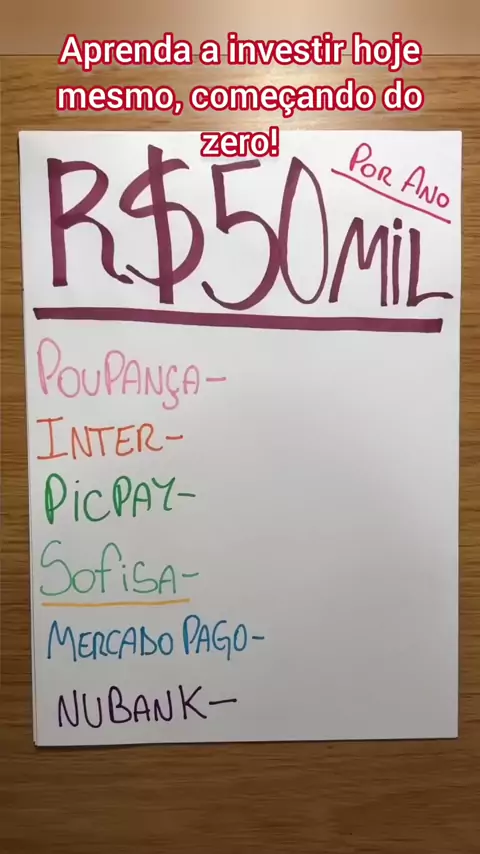 Aprenda a investir hoje
mesmo, começando do
zero!
POR ANO
R$50 MIL
POUPANÇA-
INTER-
PICPAY-
SOFISA-
MERCADO PAGO-
NUBANK-